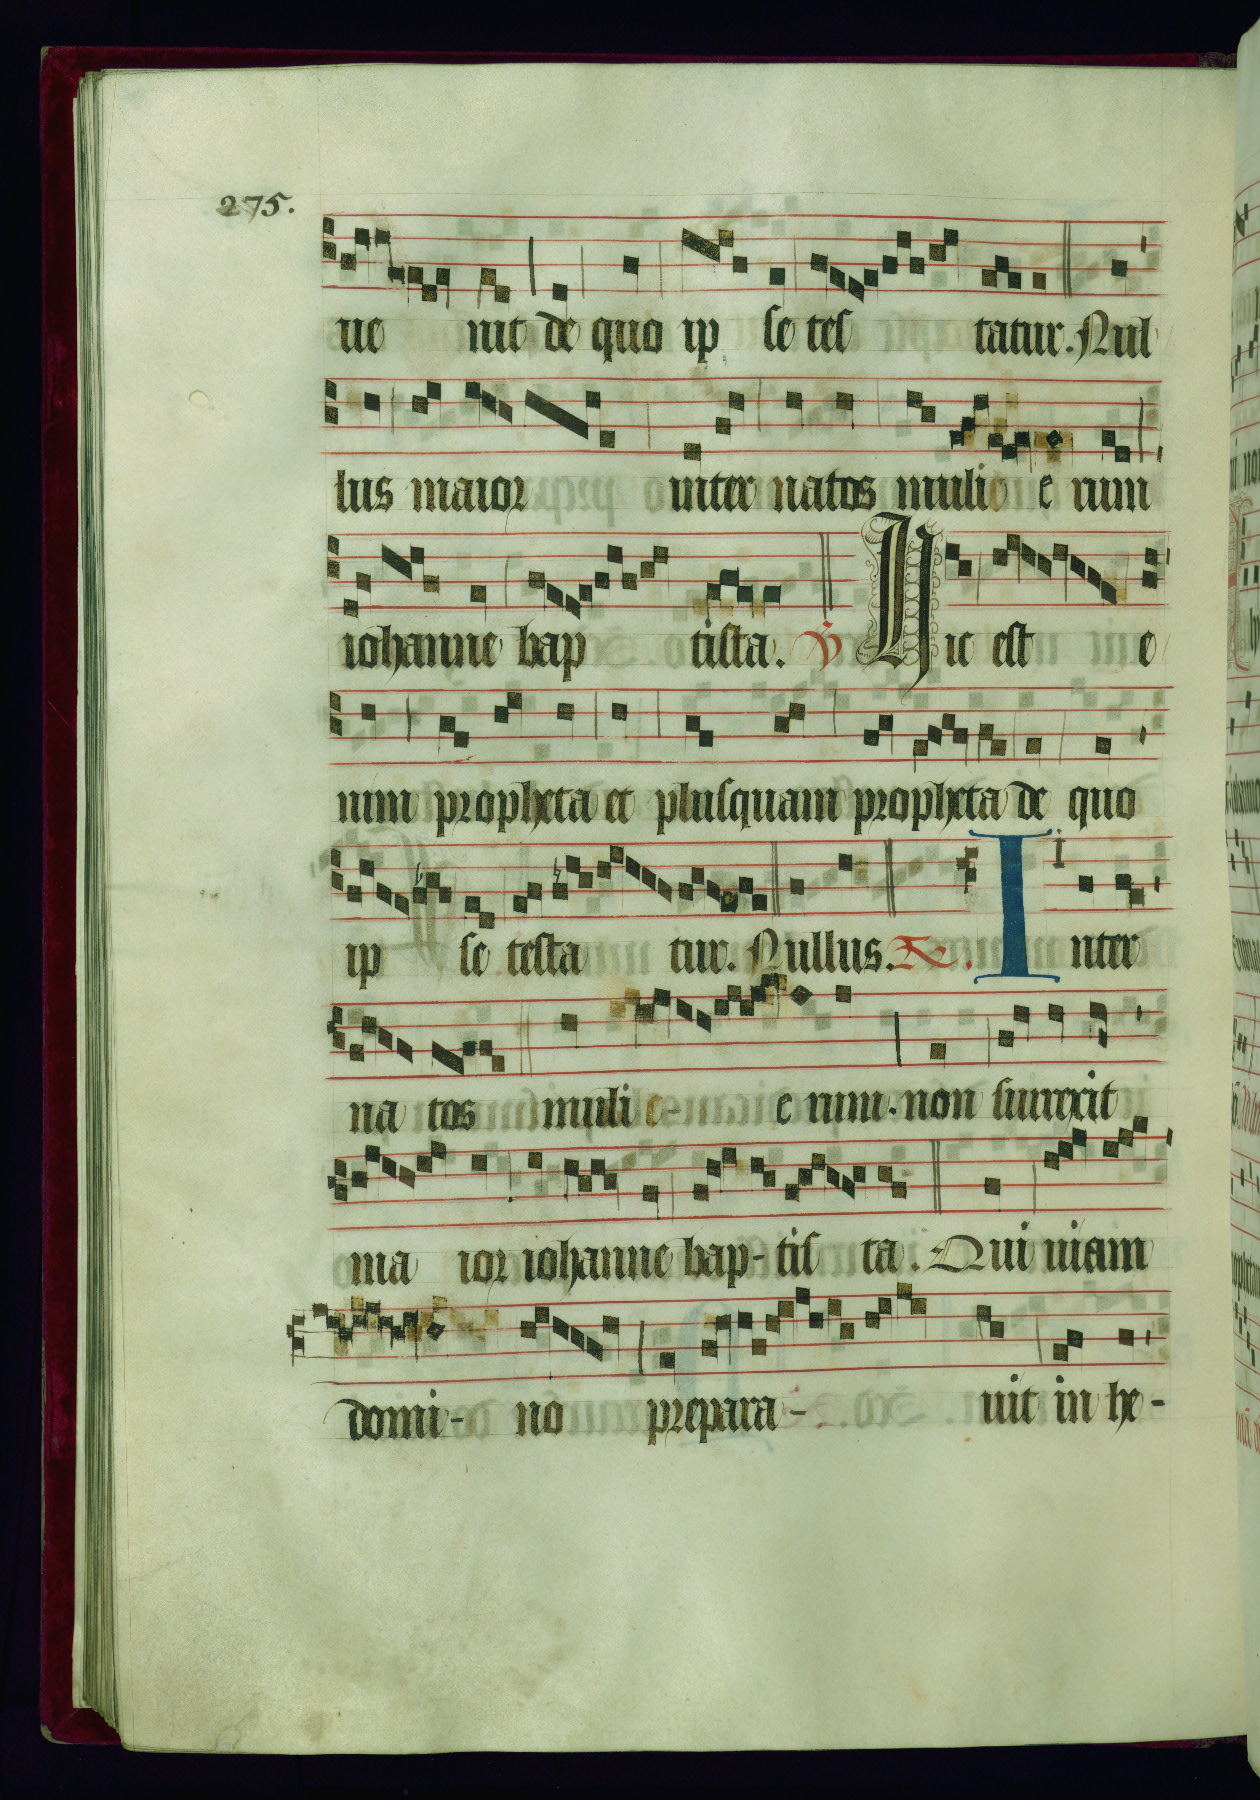 275.
ue nit de quo ip se tes tatur. Nul
lus maior inter natos mulie e rum
iohanne bap tista. V Hic est e
nim propheta et plusquam propheta de quo
ip se testa tur. Nullus. R. Inter
na tos muli e- e rum. non surrexit
ma ior iohanne bap- tis ta. Qui uiam
domi- no prepara- uit in he-